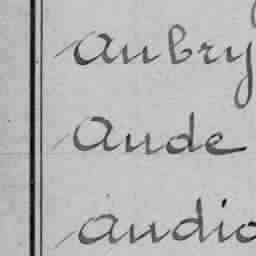 Aubry
Aude
Audic